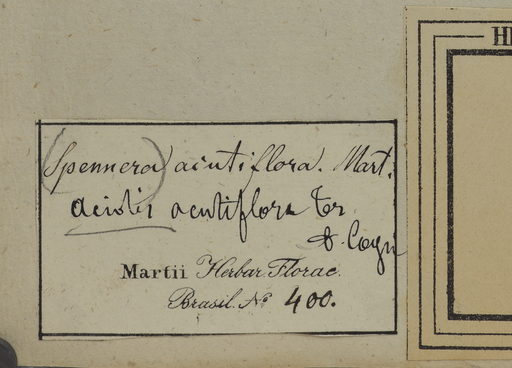 (Spennera) acutiflora. Mart.
Aciotis acutiflora Tr.
d. Cogn
Martii Herbar. Florae.
Brasil. No 400.